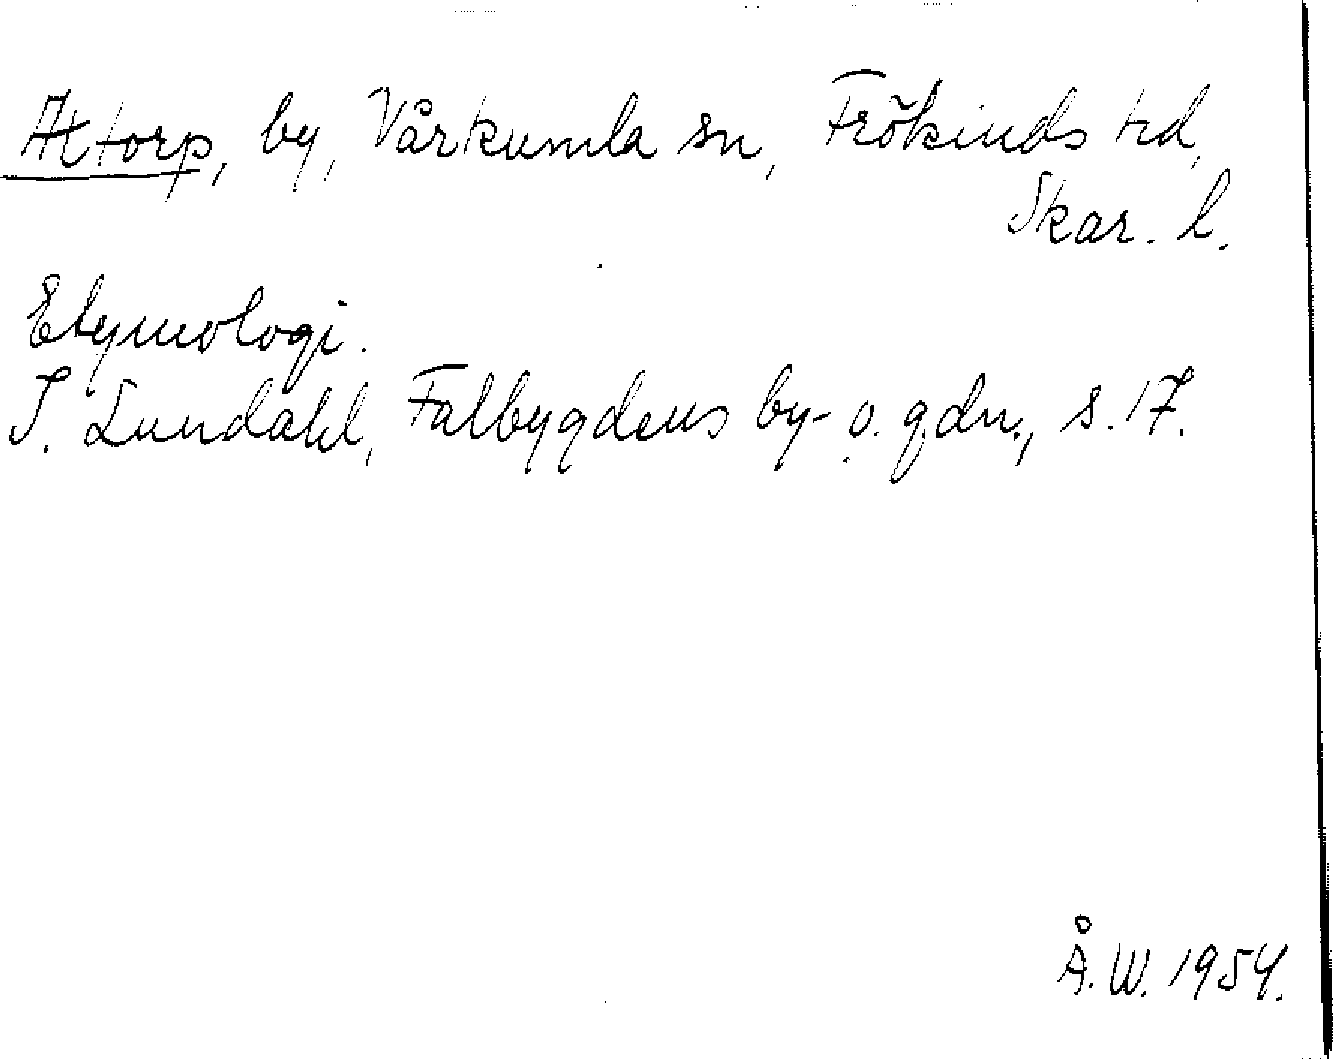 Attorp, by, Vårkumla sn, Frökinds hd,
Skar. l.
Etymologi.
I. Lundahl, Falbygdens by- o. gdn., s. 17.
Å. W. 1954.